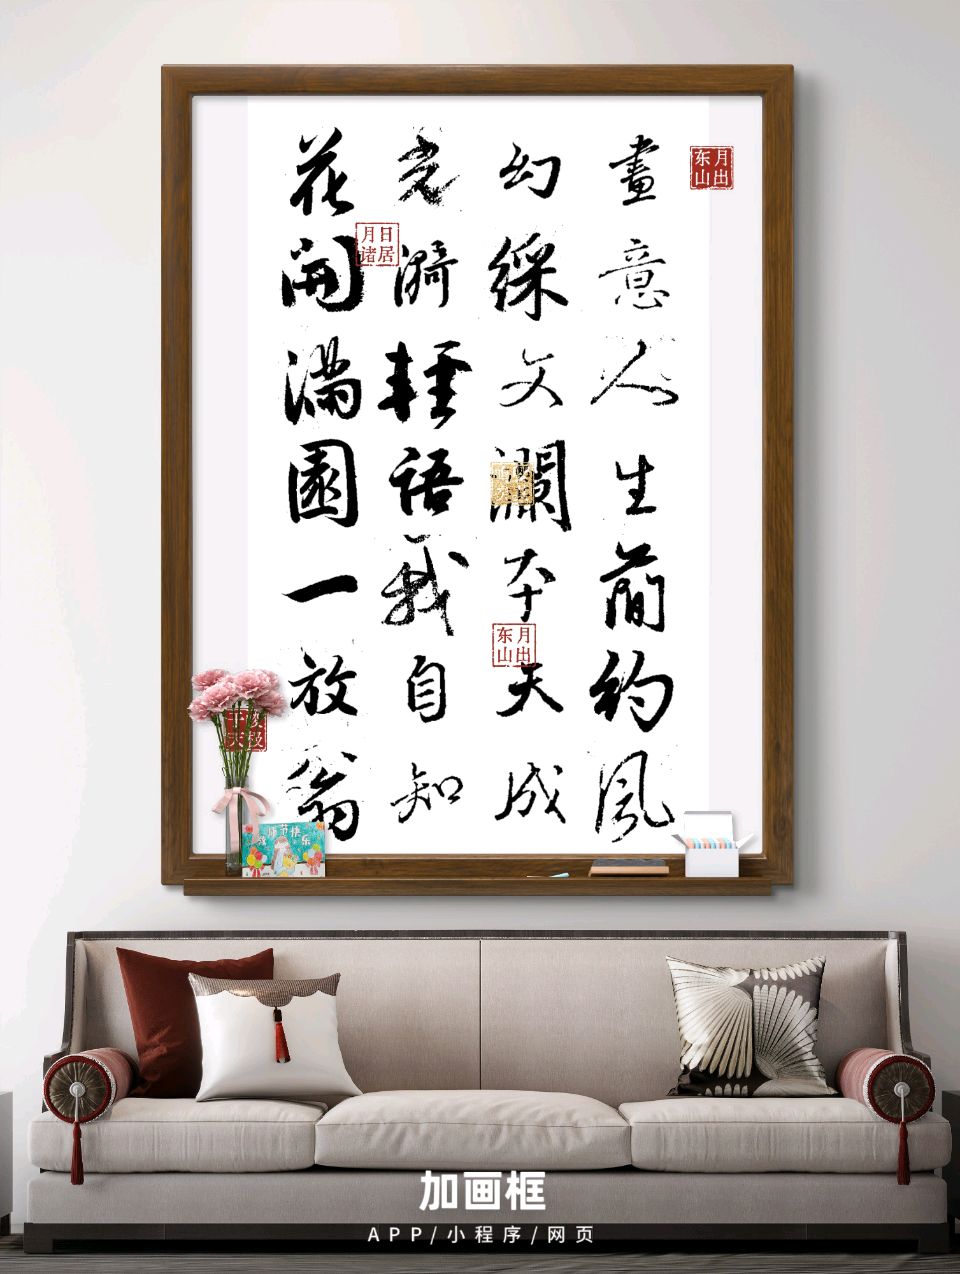 月出东山
畫意人生簡約風
幻綵文瀾本天成
月出东山
光漪輕語我自知
日居月诸
花開滿園一放翁
师节快乐
加画框
APP/小程序/网页